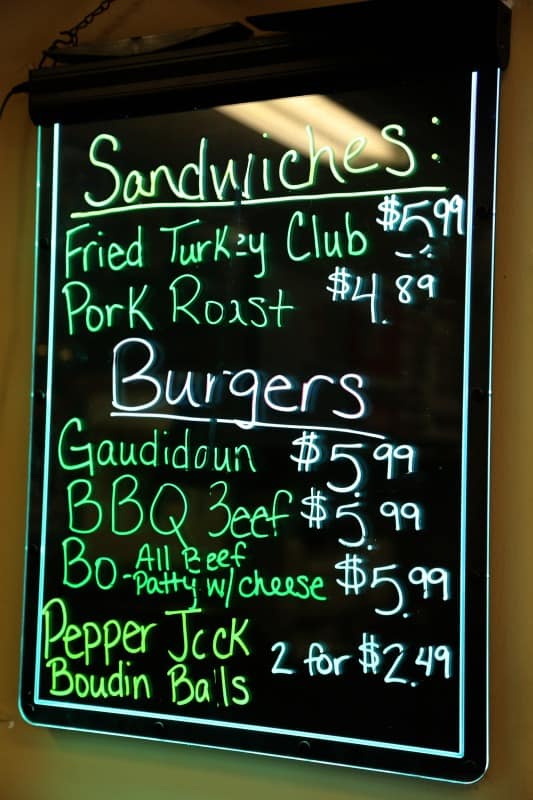 Sandwiches:
Fried Turkey Club $5.99
Pork Roast $4.89
Burgers
Gaudidoun $5.99
BBQ Beef $5.99
Bo-All Beef Patty w/ cheese $5.99
Pepper Jack
Boudin Balls 2 for $2.49